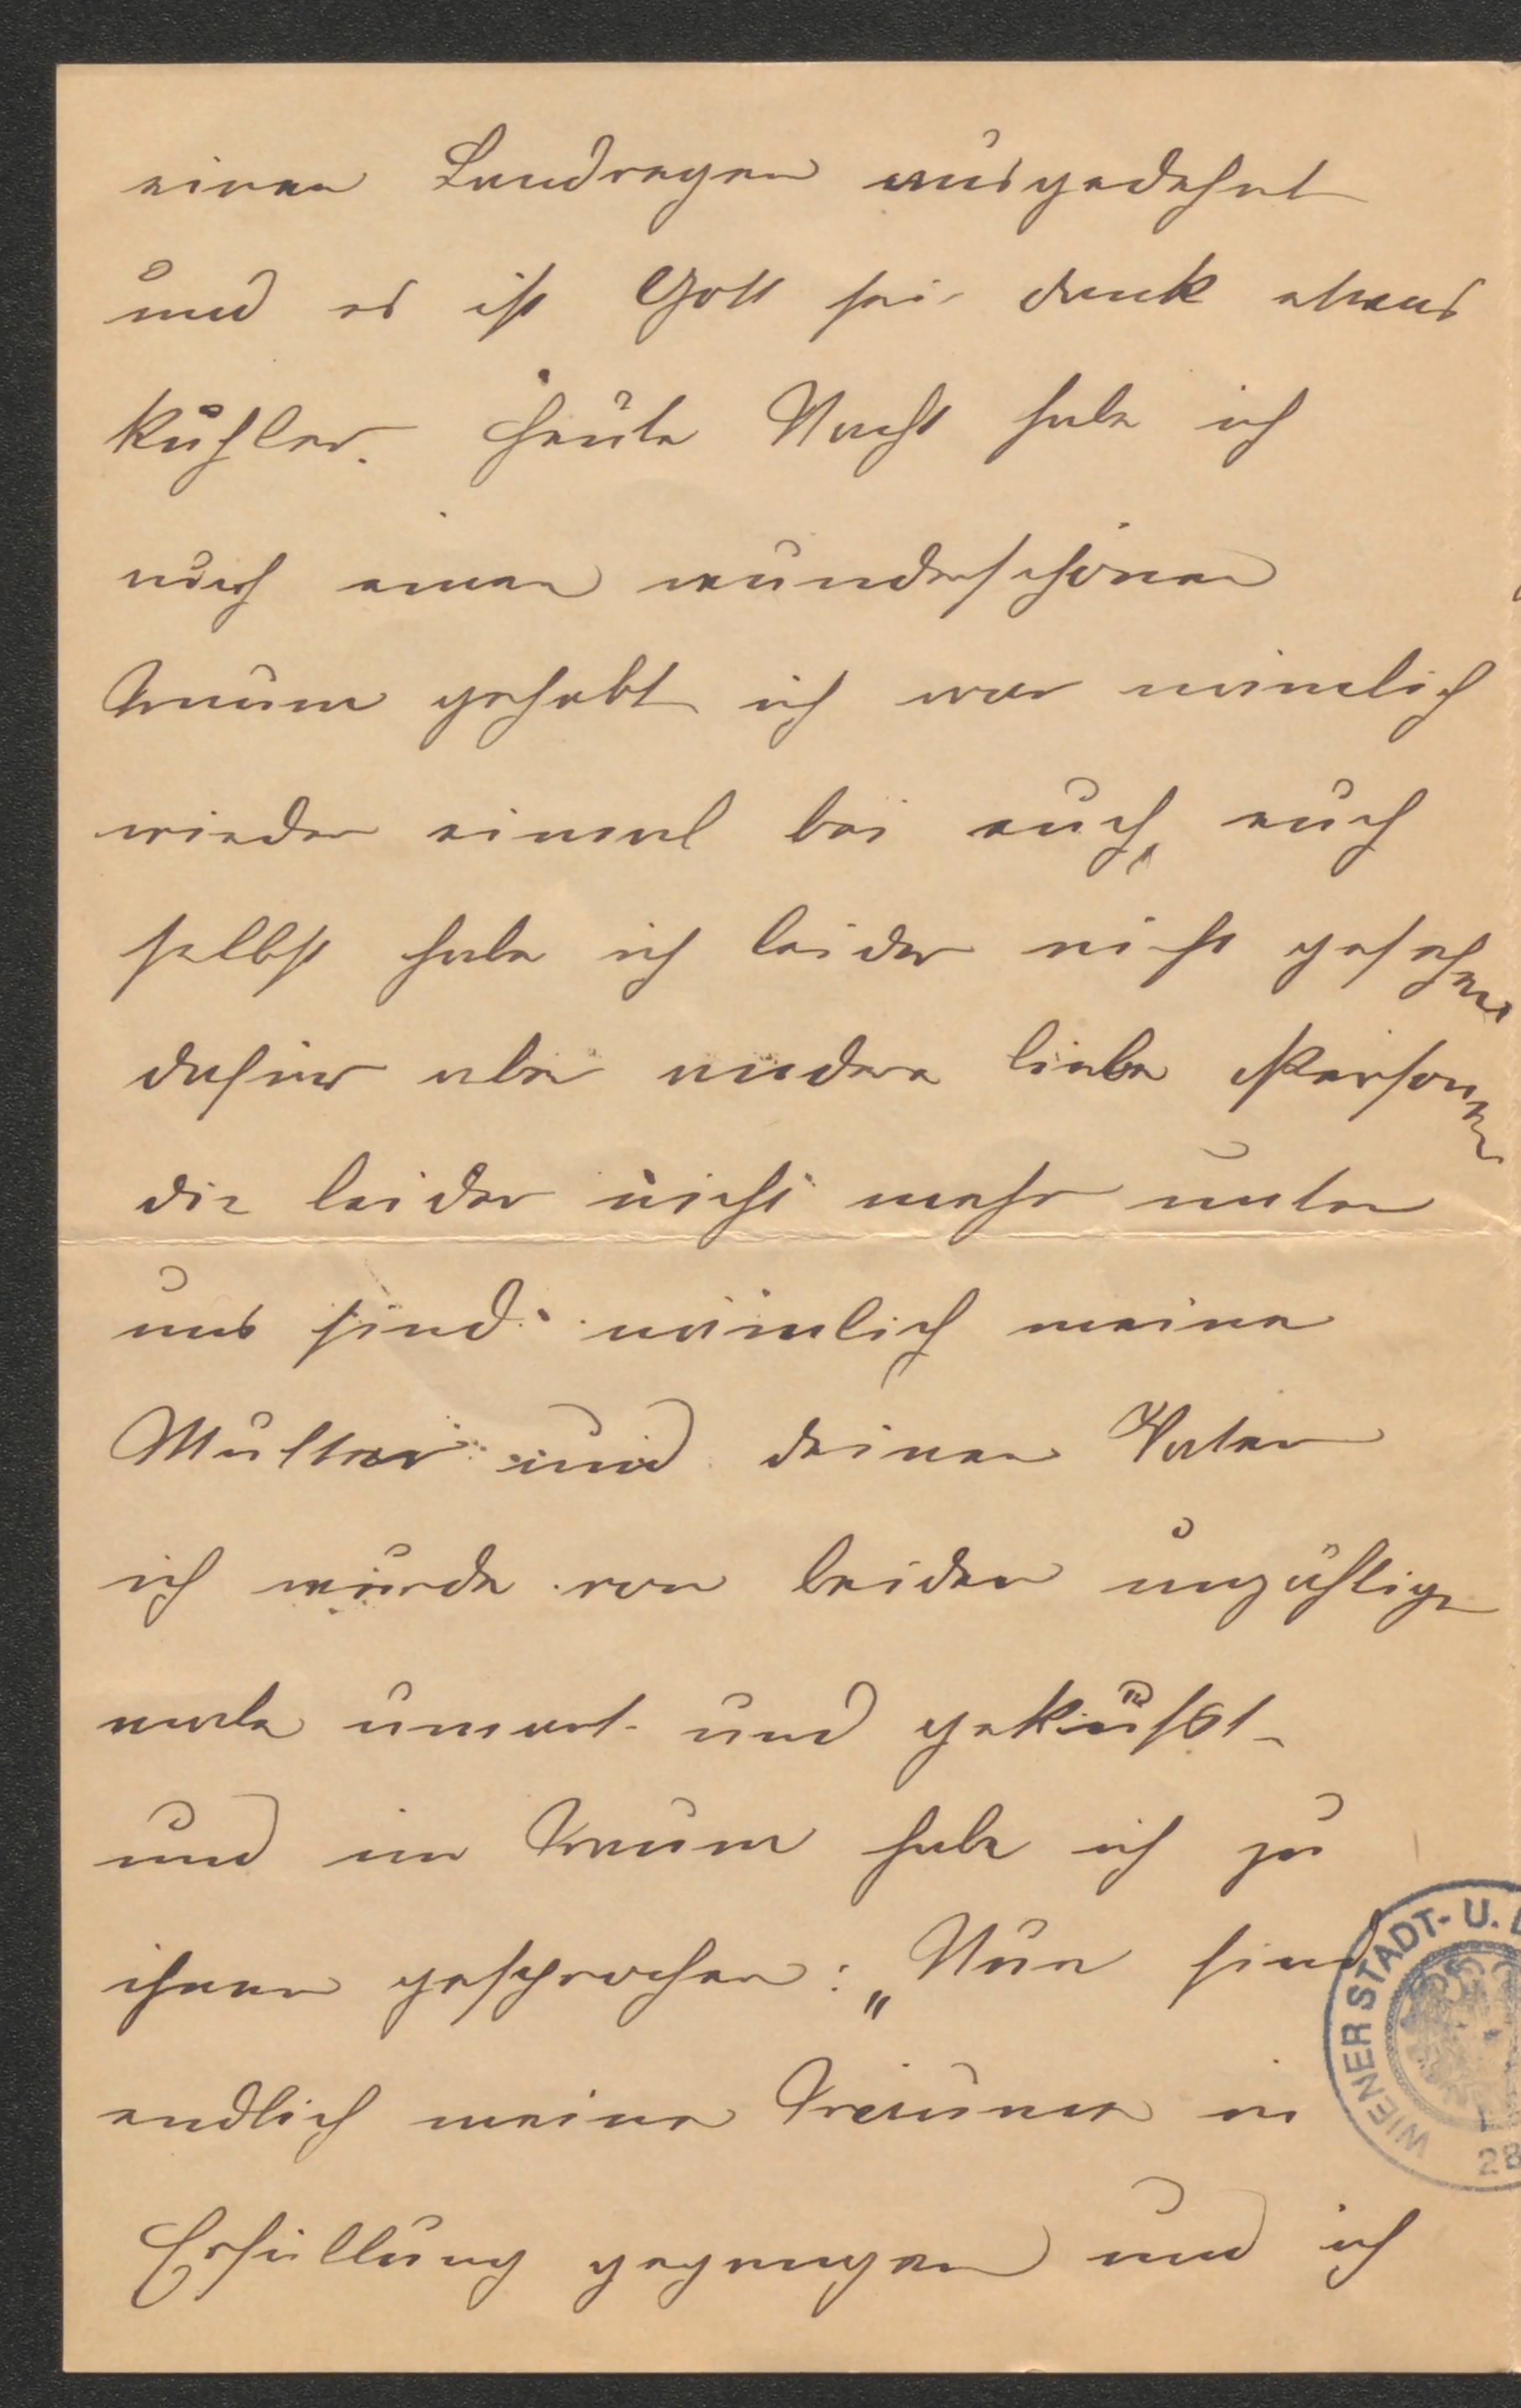 einen Landregen ausgedehnt
und es ist Gott sei dank etwas
kühler. Heute Nacht habe ich
auch einen wunderschönen
Traum gehabt ich war nämlich
wieder einmal bei euch, euch
selbst habe ich leider nicht gesehen
dafür aber andere liebe Personen
die leider nicht mehr unter
uns sind nämlich meine
Mutter und deinen Vater
ich wurde von beiden unzählige
male umarmt und geküßt
und im Traum habe ich zu
ihnen gesprochen: „Nun sind
endlich meine Träume in
Erfüllung gegangen und ich
WIENER STADT- U.
28